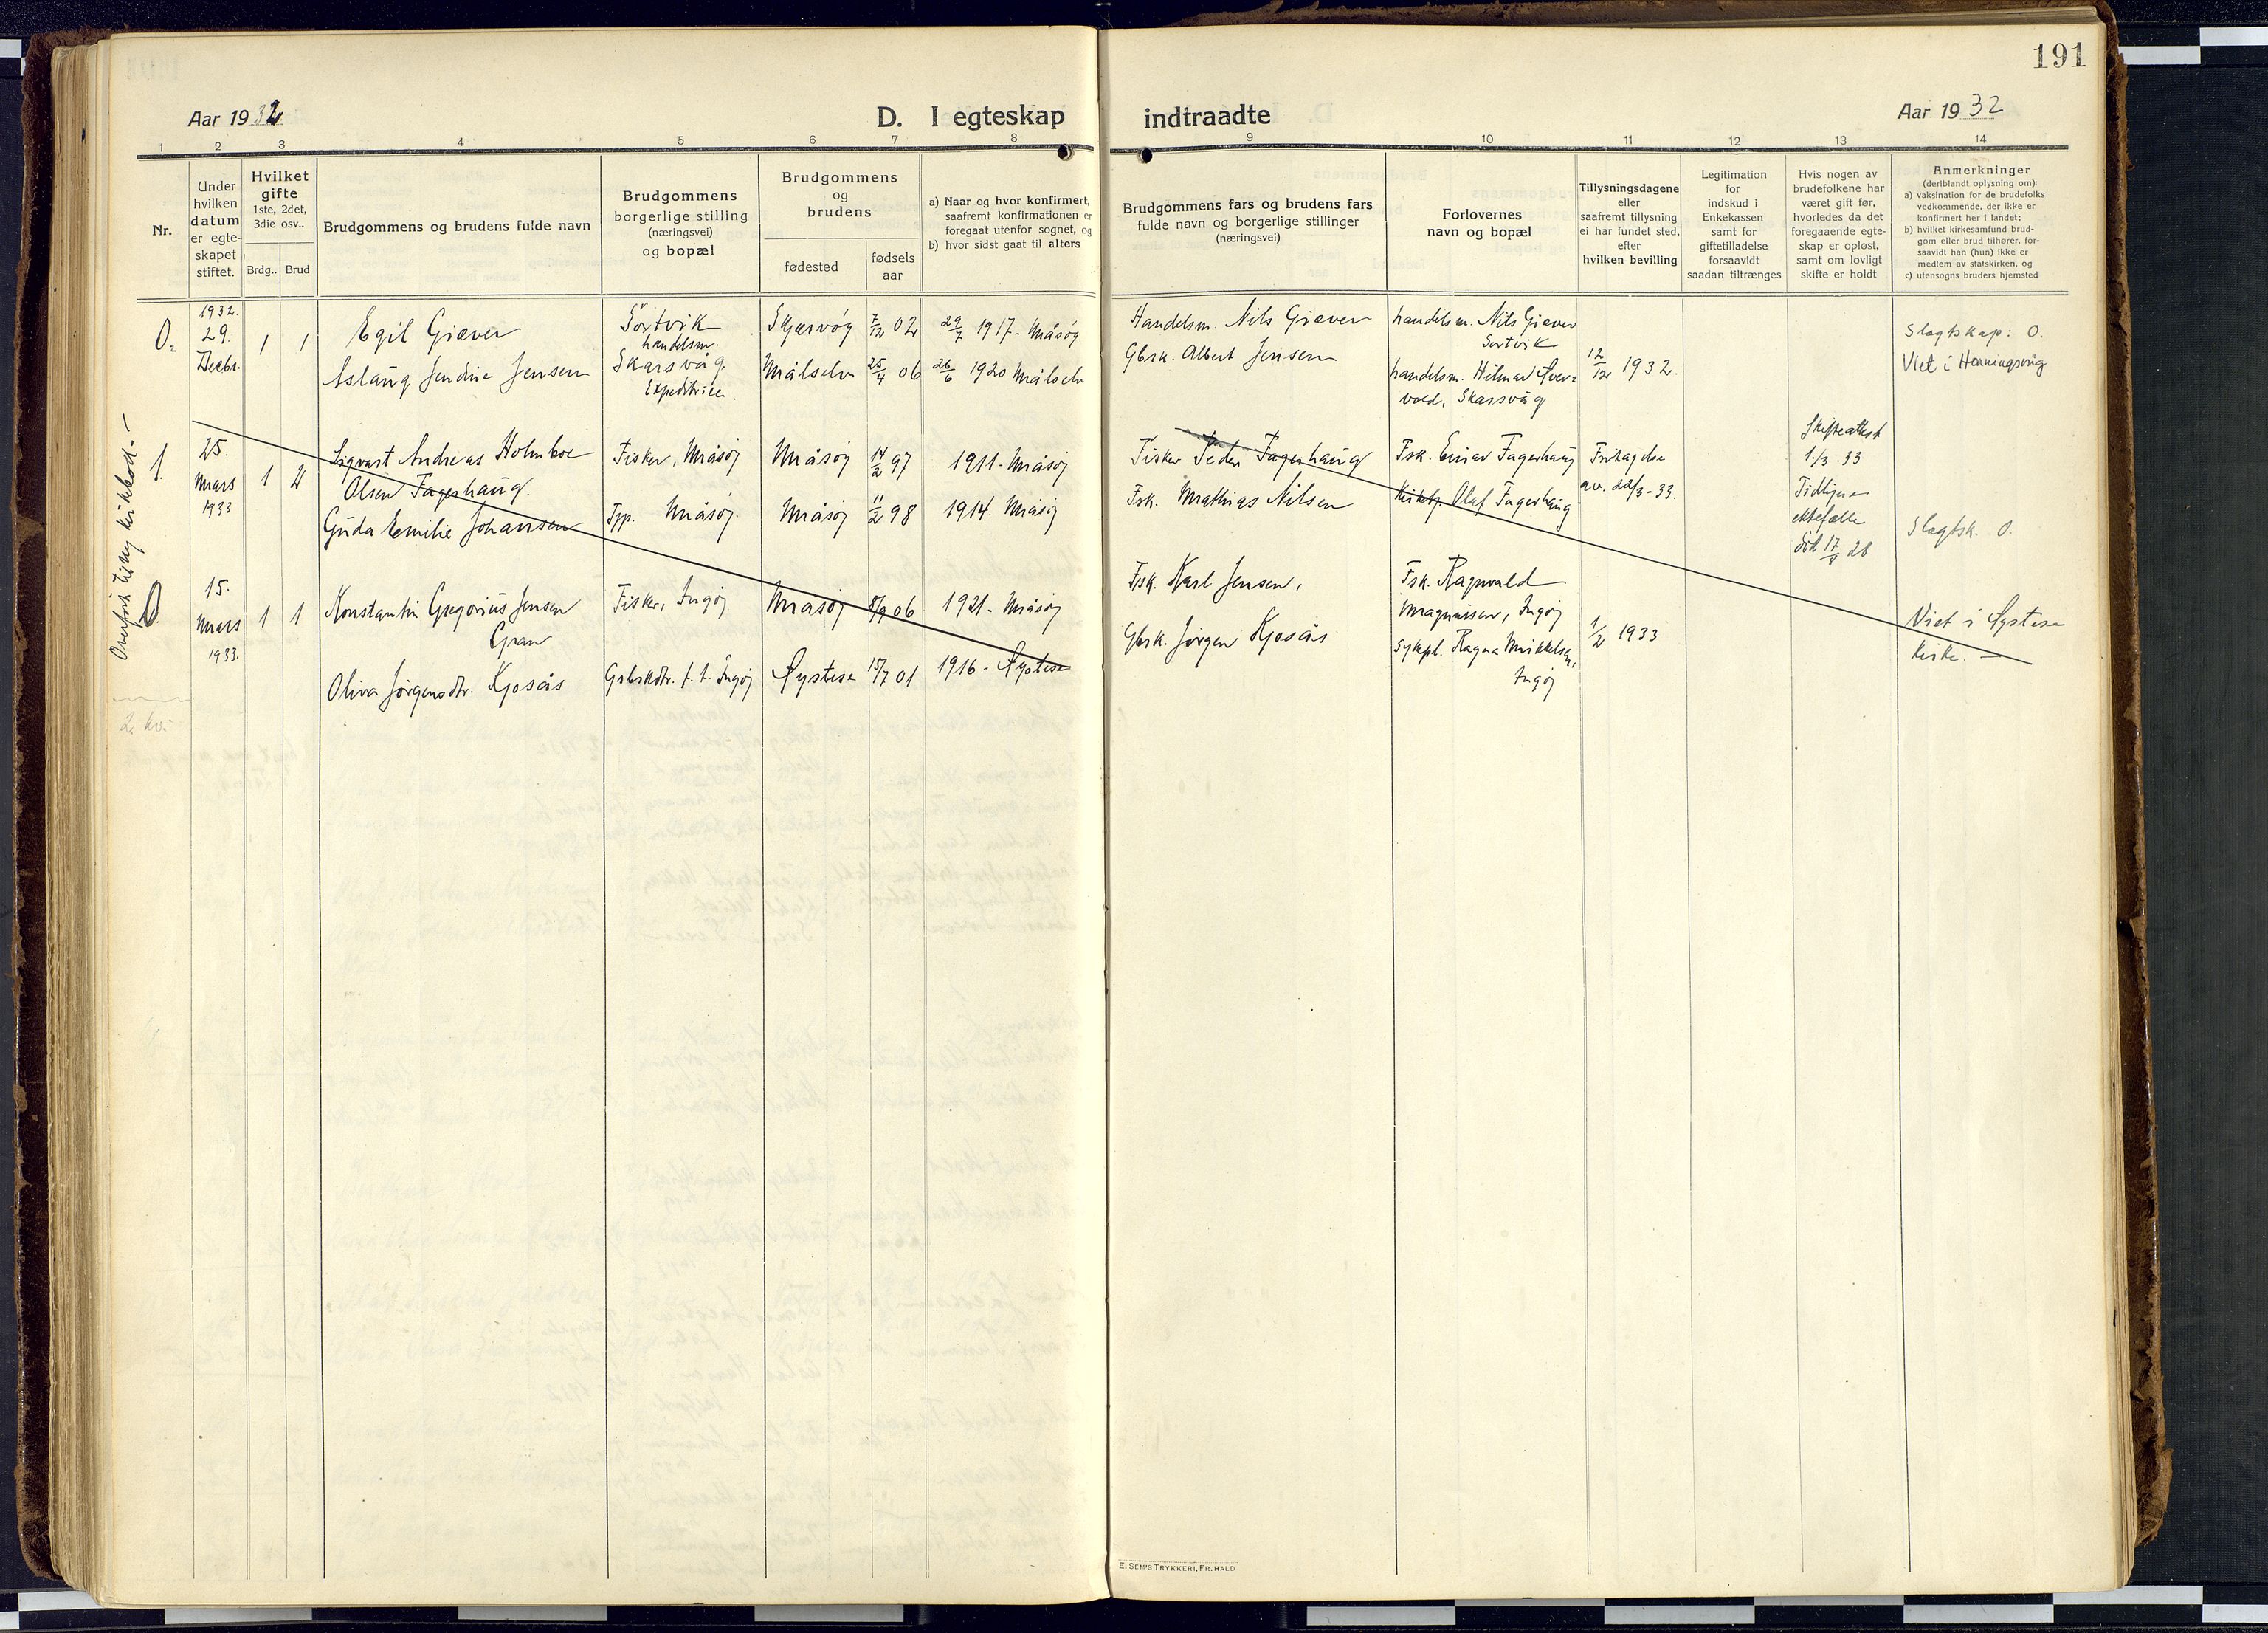 191
Aar 1932
D. I egteskap
indtraadte
Aar 1932
1 2 3 4 5 6 7 8 9 10 11 12 13 14
Nr.
Under
hvilken
datum
er egte-
skapet
stiftet.
Hvilket
gifte
1ste, 2det,
3die osv..
Brdg.. Brud
Brudgommens og brudens fulde navn
Brudgommens
borgerlige stilling
(næringsvei)
og bopæl
Brudgommens
og
brudens
fødested
fødsels
aar
a) Naar og hvor konfirmert,
saafremt konfirmationen er
foregaat utenfor sognet, og
b) hvor sidst gaat til alters
Brudgommens fars og brudens fars
fulde navn og borgerlige stillinger
(næringsvei)
Forlovernes
navn og bopæl
Tillysningsdagene
eller
saafremt tillysning
ei har fundet sted,
efter
hvilken bevilling
Legitimation
for
indskud i
Enkekassen
samt for
giftetilladelse
forsaavidt
saadan tiltrænges
Hvis nogen av
brudefolkene har
været gift før,
hvorledes da det
foregaaende egte-
skap er opløst,
samt om lovligt
skifte er holdt
Anmerkninger
(deriblandt oplysning om):
a) vaksination for de brudefolks
vedkommende, der ikke er
konfirmert her i landet;
b) hvilket kirkesamfund brud-
gom eller brud tilhører, for-
saavidt han (hun) ikke er
medlem av statskirken, og
c) utensogns bruders hjemsted
0.
1932.
29.
Decbr.
1 1
Egil Giæver
Aslaug Jendine Jensen
Sortvik
handelsm.
Skarsvåg
Expeditrice.
Skjervøy 7/12 02 29/7 1917 - Måsøy
Målselv 25/4 06 26/6 1920 Målselv
Handelsm. Nils Giæver
Gbrk. Albert Jensen
handelsm. Nils Giæver
Sortvik
handelsm. Hilmar
vold, Skarsvåg
12/12 1932.
Slegtskap: 0.
Viet i Henningsvåg
1.
25.
Mars
1933
1 2
Sigvart Andreas Holmboe
Olsen Fagerhaug.
Guda Emilie Johansen
Fisker, Måsøy
Måsøy.
Måsøy 14/2 97 1911 - Måsøy
Måsøy 11/2 98 1914. Måsøy
Fisker Peder Fagerhaug
Fsk. Mathias Nilsen
Fsk. Einar Fagerhaug
Olaf Fagerhaug
Fritagelse
av. 22/3 - 33.
Skifteattest
1./3. 33
Tidligere
ektefælle
død 17/8 28
Slegtsk. 0.
0
15.
Mars
1933.
1 1
Konstantin Gregorius Jensen
Gran
Oliva Jørgensdtr. Kjosås
Fisker, Ingøy
Gbrkdtr. f. t. Ingøy
Måsøy 8/9 06 1921 - Måsøy
Øystese 15/7 01 1916 - Øystese
Fsk. Karl Jensen,
Gbrk. Jørgen Kjosås
Fsk. Ragnvald
Magnussen, Ingøy
Sykpl. Ragna Mikkelsen,
Ingøy
1/2 1933
Viet i Øystese
kirke. —
2. kv.
E. SEM'S TRYKKERI, FR.HALD